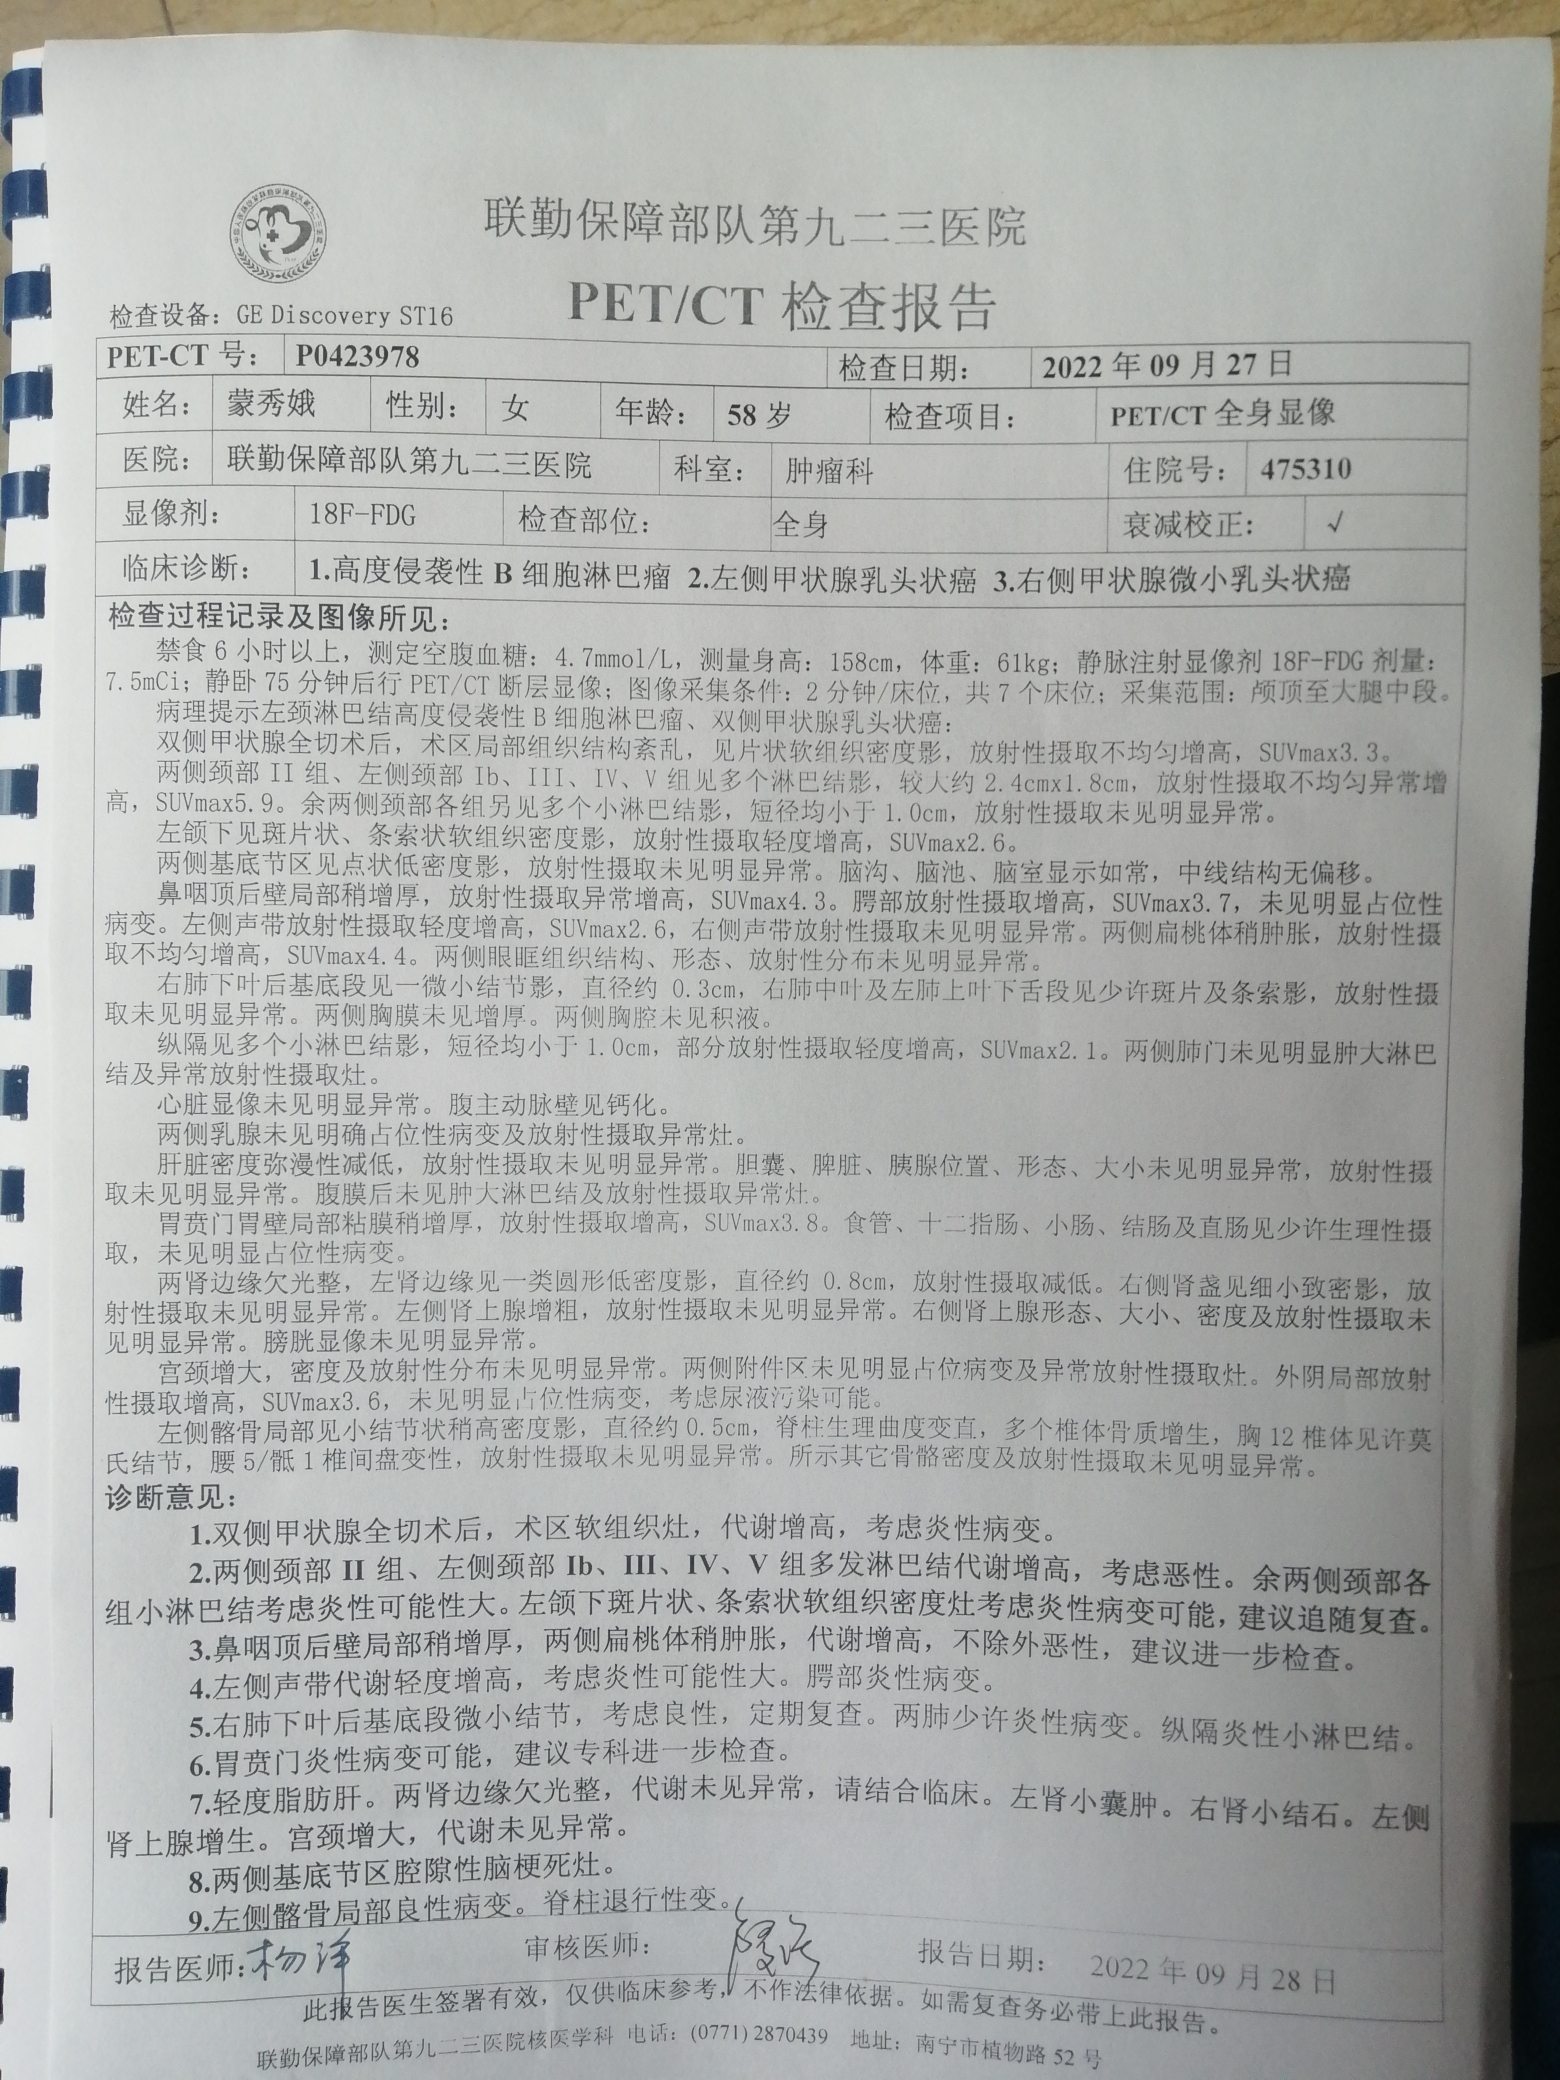 联勤保障部队第九二三医院
检查设备：GE Discovery ST16
PET/CT 检查报告
PET-CT 号： P0423978 检查日期： 2022 年 09 月 27 日
姓名： 蒙秀娥 性别： 女 年龄： 58 岁 检查项目： PET/CT 全身显像
医院： 联勤保障部队第九二三医院 科室： 肿瘤科 住院号： 475310
显像剂： 18F-FDG 检查部位： 全身 衰减校正： √
临床诊断： 1.高度侵袭性 B 细胞淋巴瘤 2.左侧甲状腺乳头状癌 3.右侧甲状腺微小乳头状癌
检查过程记录及图像所见：
禁食 6 小时以上，测定空腹血糖：4.7mmol/L，测量身高：158cm，体重：61kg；静脉注射显像剂 18F-FDG 剂量：
7.5mCi；静卧 75 分钟后行 PET/CT 断层显像；图像采集条件：2 分钟/床位，共 7 个床位；采集范围：颅顶至大腿中段。
病理提示左颈淋巴结高度侵袭性 B 细胞淋巴瘤、双侧甲状腺乳头状癌：
双侧甲状腺全切术后，术区局部组织结构紊乱，见片状软组织密度影，放射性摄取不均匀增高，SUVmax3.3。
两侧颈部 II 组、左侧颈部 Ib、III、IV、V 组见多个淋巴结影，较大约 2.4cmx1.8cm，放射性摄取不均匀异常增
高，SUVmax5.9。余两侧颈部各组另见多个小淋巴结影，短径均小于 1.0cm，放射性摄取未见明显异常。
左颌下见斑片状、条索状软组织密度影，放射性摄取轻度增高，SUVmax2.6。
两侧基底节区见点状低密度影，放射性摄取未见明显异常。脑沟、脑池、脑室显示如常，中线结构无偏移。
鼻咽顶后壁局部稍增厚，放射性摄取异常增高，SUVmax4.3。腭部放射性摄取增高，SUVmax3.7，未见明显占位性
病变。左侧声带放射性摄取轻度增高，SUVmax2.6，右侧声带放射性摄取未见明显异常。两侧扁桃体稍肿胀，放射性摄
取不均匀增高，SUVmax4.4。两侧眼眶组织结构、形态、放射性分布未见明显异常。
右肺下叶后基底段见一微小结节影，直径约 0.3cm，右肺中叶及左肺上叶下舌段见少许斑片及条索影，放射性摄
取未见明显异常。两侧胸膜未见增厚。两侧胸腔未见积液。
纵隔见多个小淋巴结影，短径均小于 1.0cm，部分放射性摄取轻度增高，SUVmax2.1。两侧肺门未见明显肿大淋巴
结及异常放射性摄取灶。
心脏显像未见明显异常。腹主动脉壁见钙化。
两侧乳腺未见明确占位性病变及放射性摄取异常灶。
肝脏密度弥漫性减低，放射性摄取未见明显异常。胆囊、脾脏、胰腺位置、形态、大小未见明显异常，放射性摄
取未见明显异常。腹膜后未见肿大淋巴结及放射性摄取异常灶。
胃贲门胃壁局部粘膜稍增厚，放射性摄取增高，SUVmax3.8。食管、十二指肠、小肠、结肠及直肠见少许生理性摄
取，未见明显占位性病变。
两肾边缘欠光整，左肾边缘见一类圆形低密度影，直径约 0.8cm，放射性摄取减低。右侧肾盏见细小致密影，放
射性摄取未见明显异常。左侧肾上腺增粗，放射性摄取未见明显异常。右侧肾上腺形态、大小、密度及放射性摄取未
见明显异常。膀胱显像未见明显异常。
宫颈增大，密度及放射性分布未见明显异常。两侧附件区未见明显占位病变及异常放射性摄取灶。外阴局部放射
性摄取增高，SUVmax3.6，未见明显占位性病变，考虑尿液污染可能。
左侧髂骨局部见小结节状稍高密度影，直径约 0.5cm，脊柱生理曲度变直，多个椎体骨质增生，胸 12 椎体见许莫
氏结节，腰 5/骶 1 椎间盘变性，放射性摄取未见明显异常。所示其它骨骼密度及放射性摄取未见明显异常。
诊断意见：
1.双侧甲状腺全切术后，术区软组织灶，代谢增高，考虑炎性病变。
2.两侧颈部 II 组、左侧颈部 Ib、III、IV、V 组多发淋巴结代谢增高，考虑恶性。余两侧颈部各
组小淋巴结考虑炎性可能性大。左颌下斑片状、条索状软组织密度灶考虑炎性病变可能，建议追随复查。
3.鼻咽顶后壁局部稍增厚，两侧扁桃体稍肿胀，代谢增高，不除外恶性，建议进一步检查。
4.左侧声带代谢轻度增高，考虑炎性可能性大。腭部炎性病变。
5.右肺下叶后基底段微小结节，考虑良性，定期复查。两肺少许炎性病变。纵隔炎性小淋巴结。
6.胃贲门炎性病变可能，建议专科进一步检查。
7.轻度脂肪肝。两肾边缘欠光整，代谢未见异常，请结合临床。左肾小囊肿。右肾小结石。左侧
肾上腺增生。宫颈增大，代谢未见异常。
8.两侧基底节区腔隙性脑梗死灶。
9.左侧髂骨局部良性病变。脊柱退行性变。
报告医师：杨洋 审核医师： 报告日期： 2022 年 09 月 28 日
此报告医生签署有效，仅供临床参考，不作法律依据。如需复查务必带上此报告。
联勤保障部队第九二三医院核医学科 电话：(0771) 2870439 地址：南宁市植物路 52 号